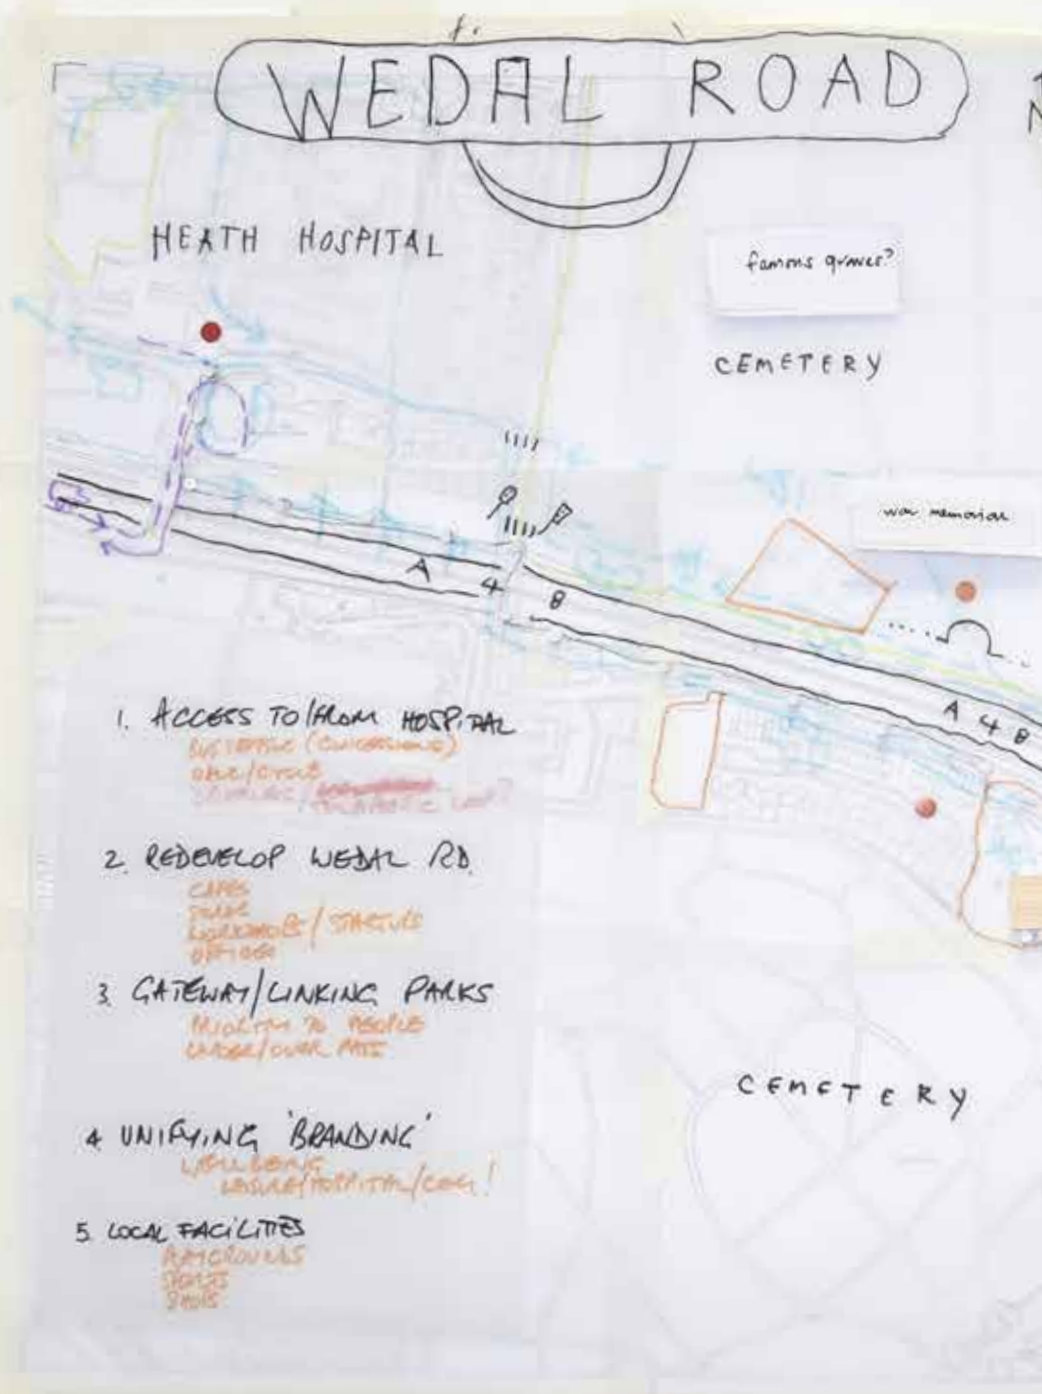 WEDAL ROAD
N
HEATH HOSPITAL
famous graves?
CEMETERY
war memorial
A 4 8
A 4 8
1. ACCESS TO/FROM HOSPITAL
2. REDEVELOP WEDAL RD.
CAFES
WORKSHOPS / STARTUPS
OFFICES
3. GATEWAY/LINKING PARKS
PRIORITY TO PEOPLE
UNDER/OVER PASS
CEMETERY
4 UNIFYING 'BRANDING'
WELLBEING
LEISURE/HOSPITAL/CEM!
5. LOCAL FACILITIES
PLAYGROUNDS
SPORTS
SHOPS